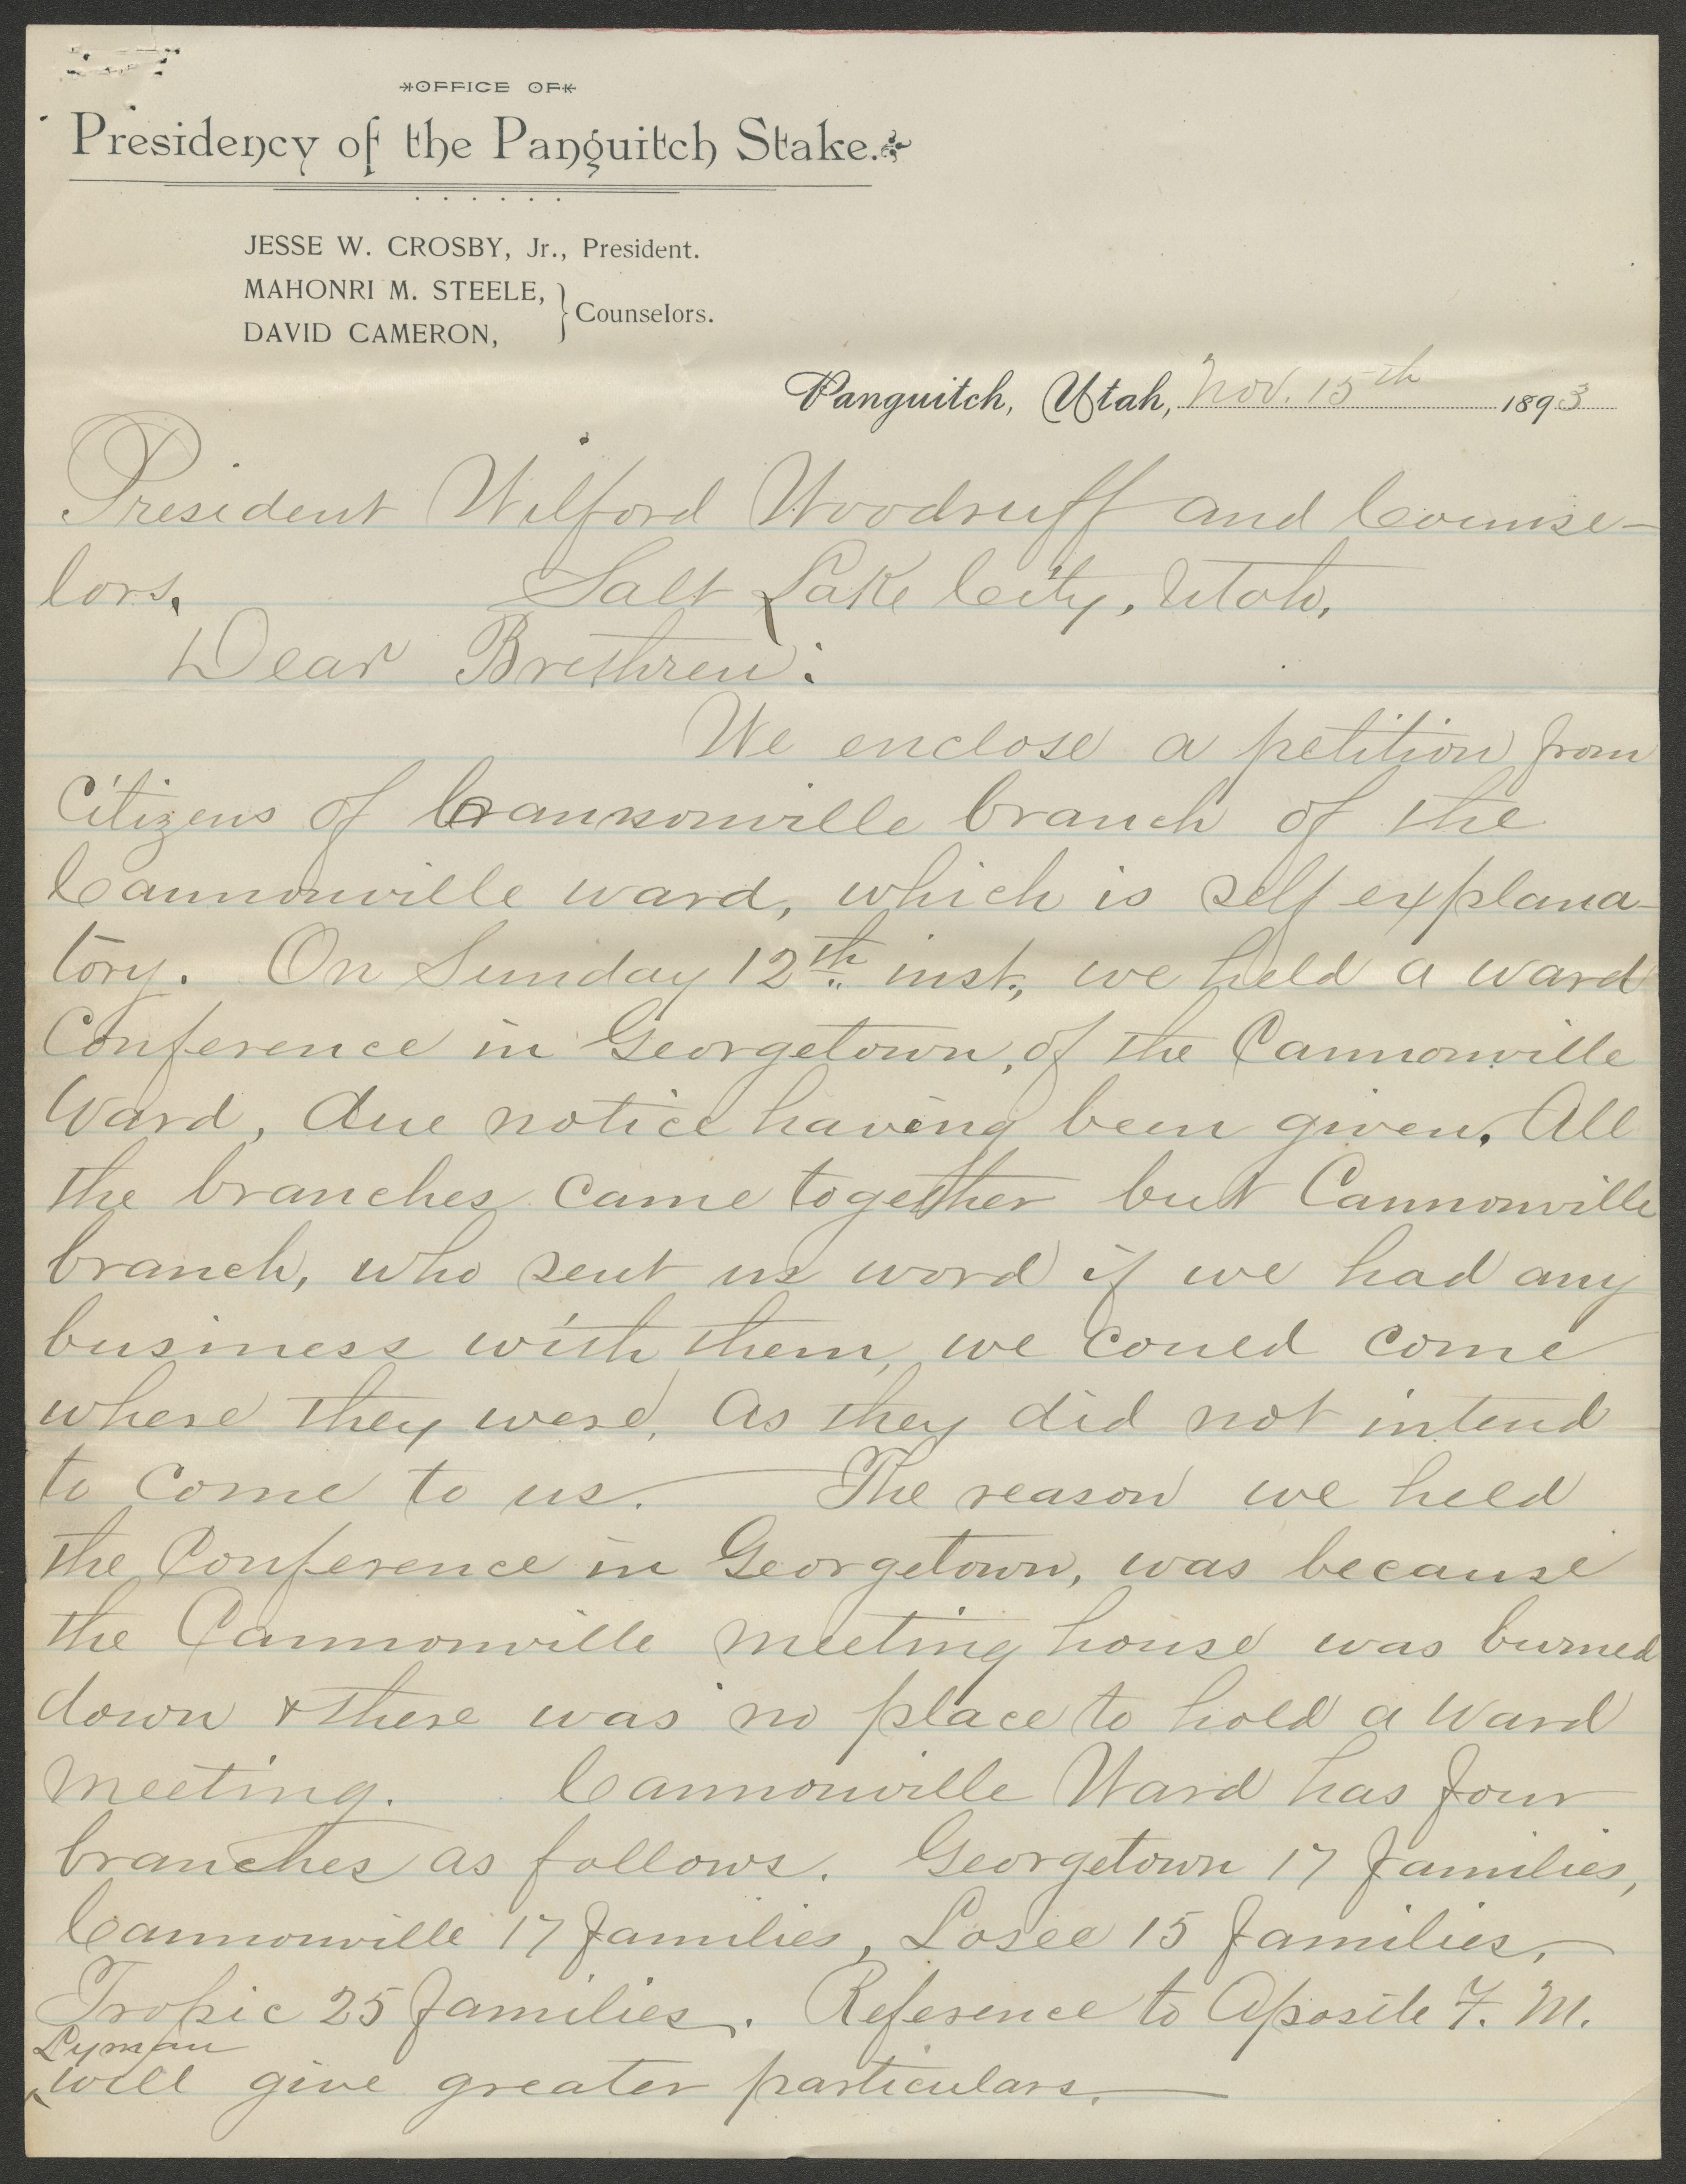 OFFICE OF
Presidency of the Panguitch Stake.
JESSE W. CROSBY, Jr., President.
MAHONRI M. STEELE,
DAVID CAMERON,
} Counselors.
Panguitch, Utah, Nov. 15th 1893
President Wilford Woodruff and Counse-
lors. Salt Lake City, Utah.
Dear Brethren:
We enclose a petition from
Citizens of Cannonville branch of the
Cannonville ward, which is self explana-
tory. On Sunday 12th inst., we held a ward
Conference in Georgetown, of the Cannonville
Ward, due notice having been given. All
the branches came together but Cannonville
branch, who sent us word if we had any
business with them, we could come
where they were, as they did not intend
to come to us. The reason we held
the Conference in Georgetown, was because
the Cannonville meeting house was burned
down & there was no place to hold a Ward
meeting. Cannonville Ward has four
branches as follows. Georgetown 17 families,
Cannonville 17 families, Losee 15 families,
Tropic 25 families. Reference to Aposile F. M.
Lyman
will give greater particulars.